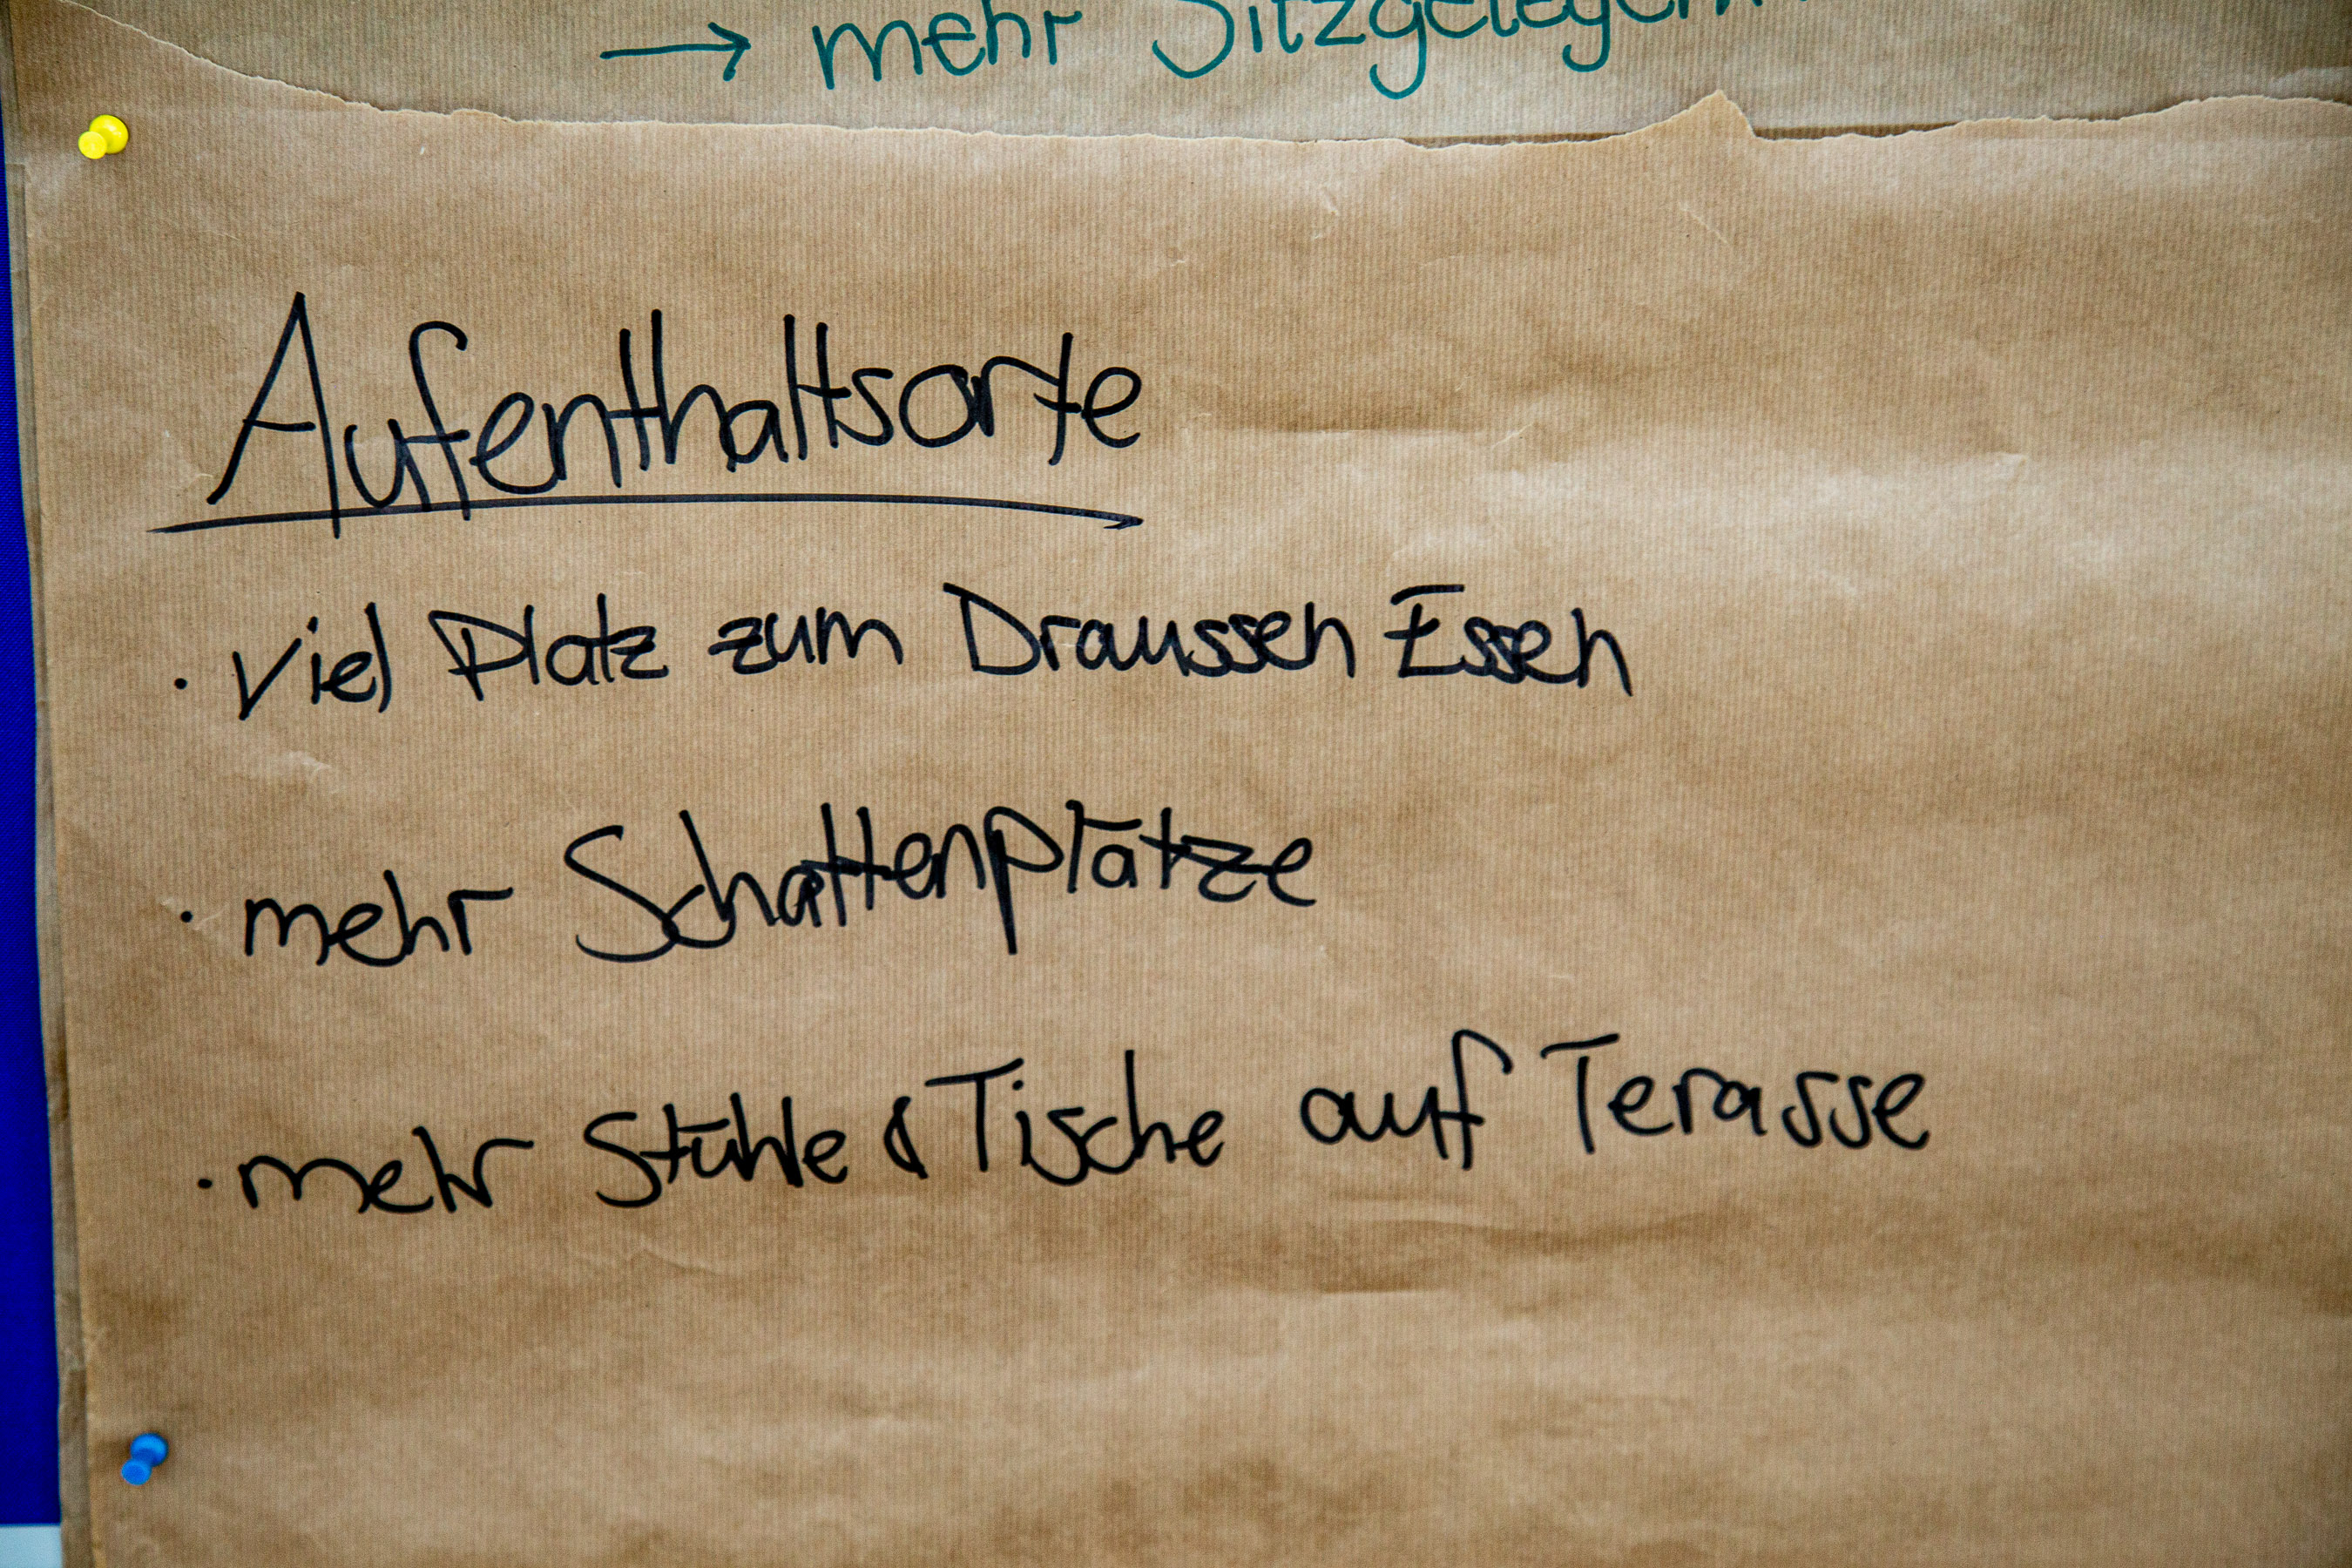 → mehr
Aufenthaltsorte
· Viel Platz zum Draussen Essen
· mehr Schattenplätze
· mehr Stühle & Tische auf Terasse